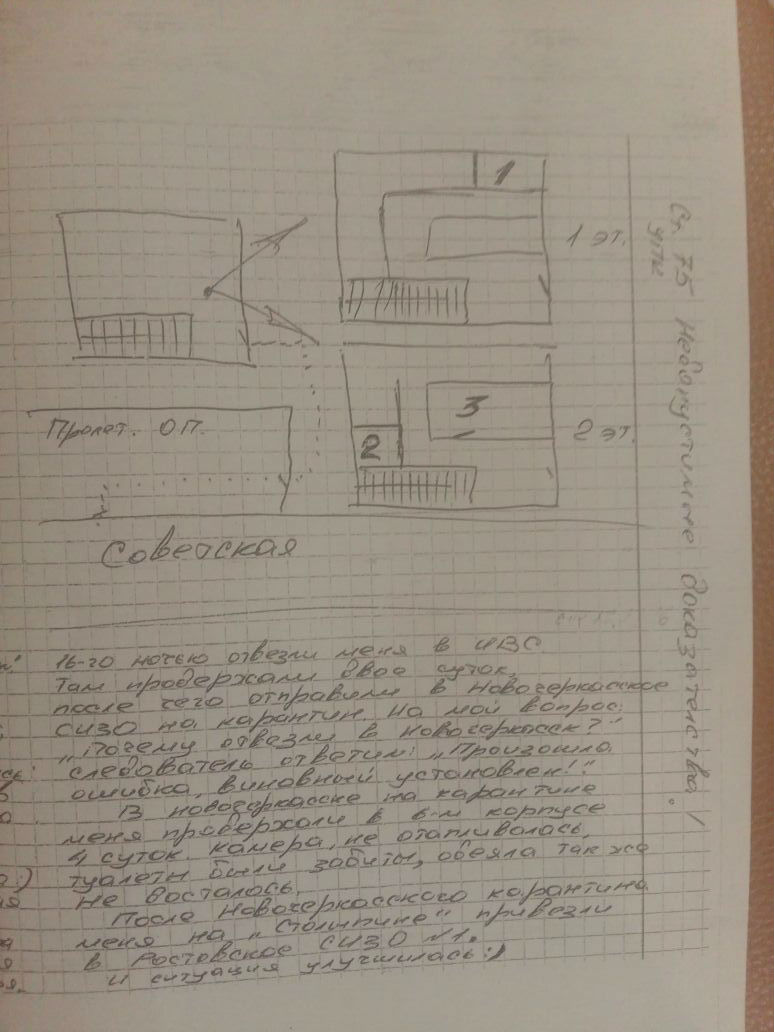 1
1 эт.
Пролет. ОП.
3
2
2 эт.
Советская
Ст. 75 Недопустимые доказательства!
УПК
16-го ночью отвезли меня в ИВС
там продержали двое суток,
после чего отправили в Новочеркасское
СИЗО на карантин, на мой вопрос:
"Почему отвезли в Новочеркасск?"
следователь ответил: "Произошла
ошибка, виновный установлен!"
В новочеркасске на карантине
меня продержали в 6-м корпусе
4 суток. камера, не отапливалась,
туалеты были забиты, одеяла так же
не досталось.
После Новочеркасского карантина
меня на "Столыпине" привезли
в Ростовское СИЗО №1.
и ситуация улучшилась:)